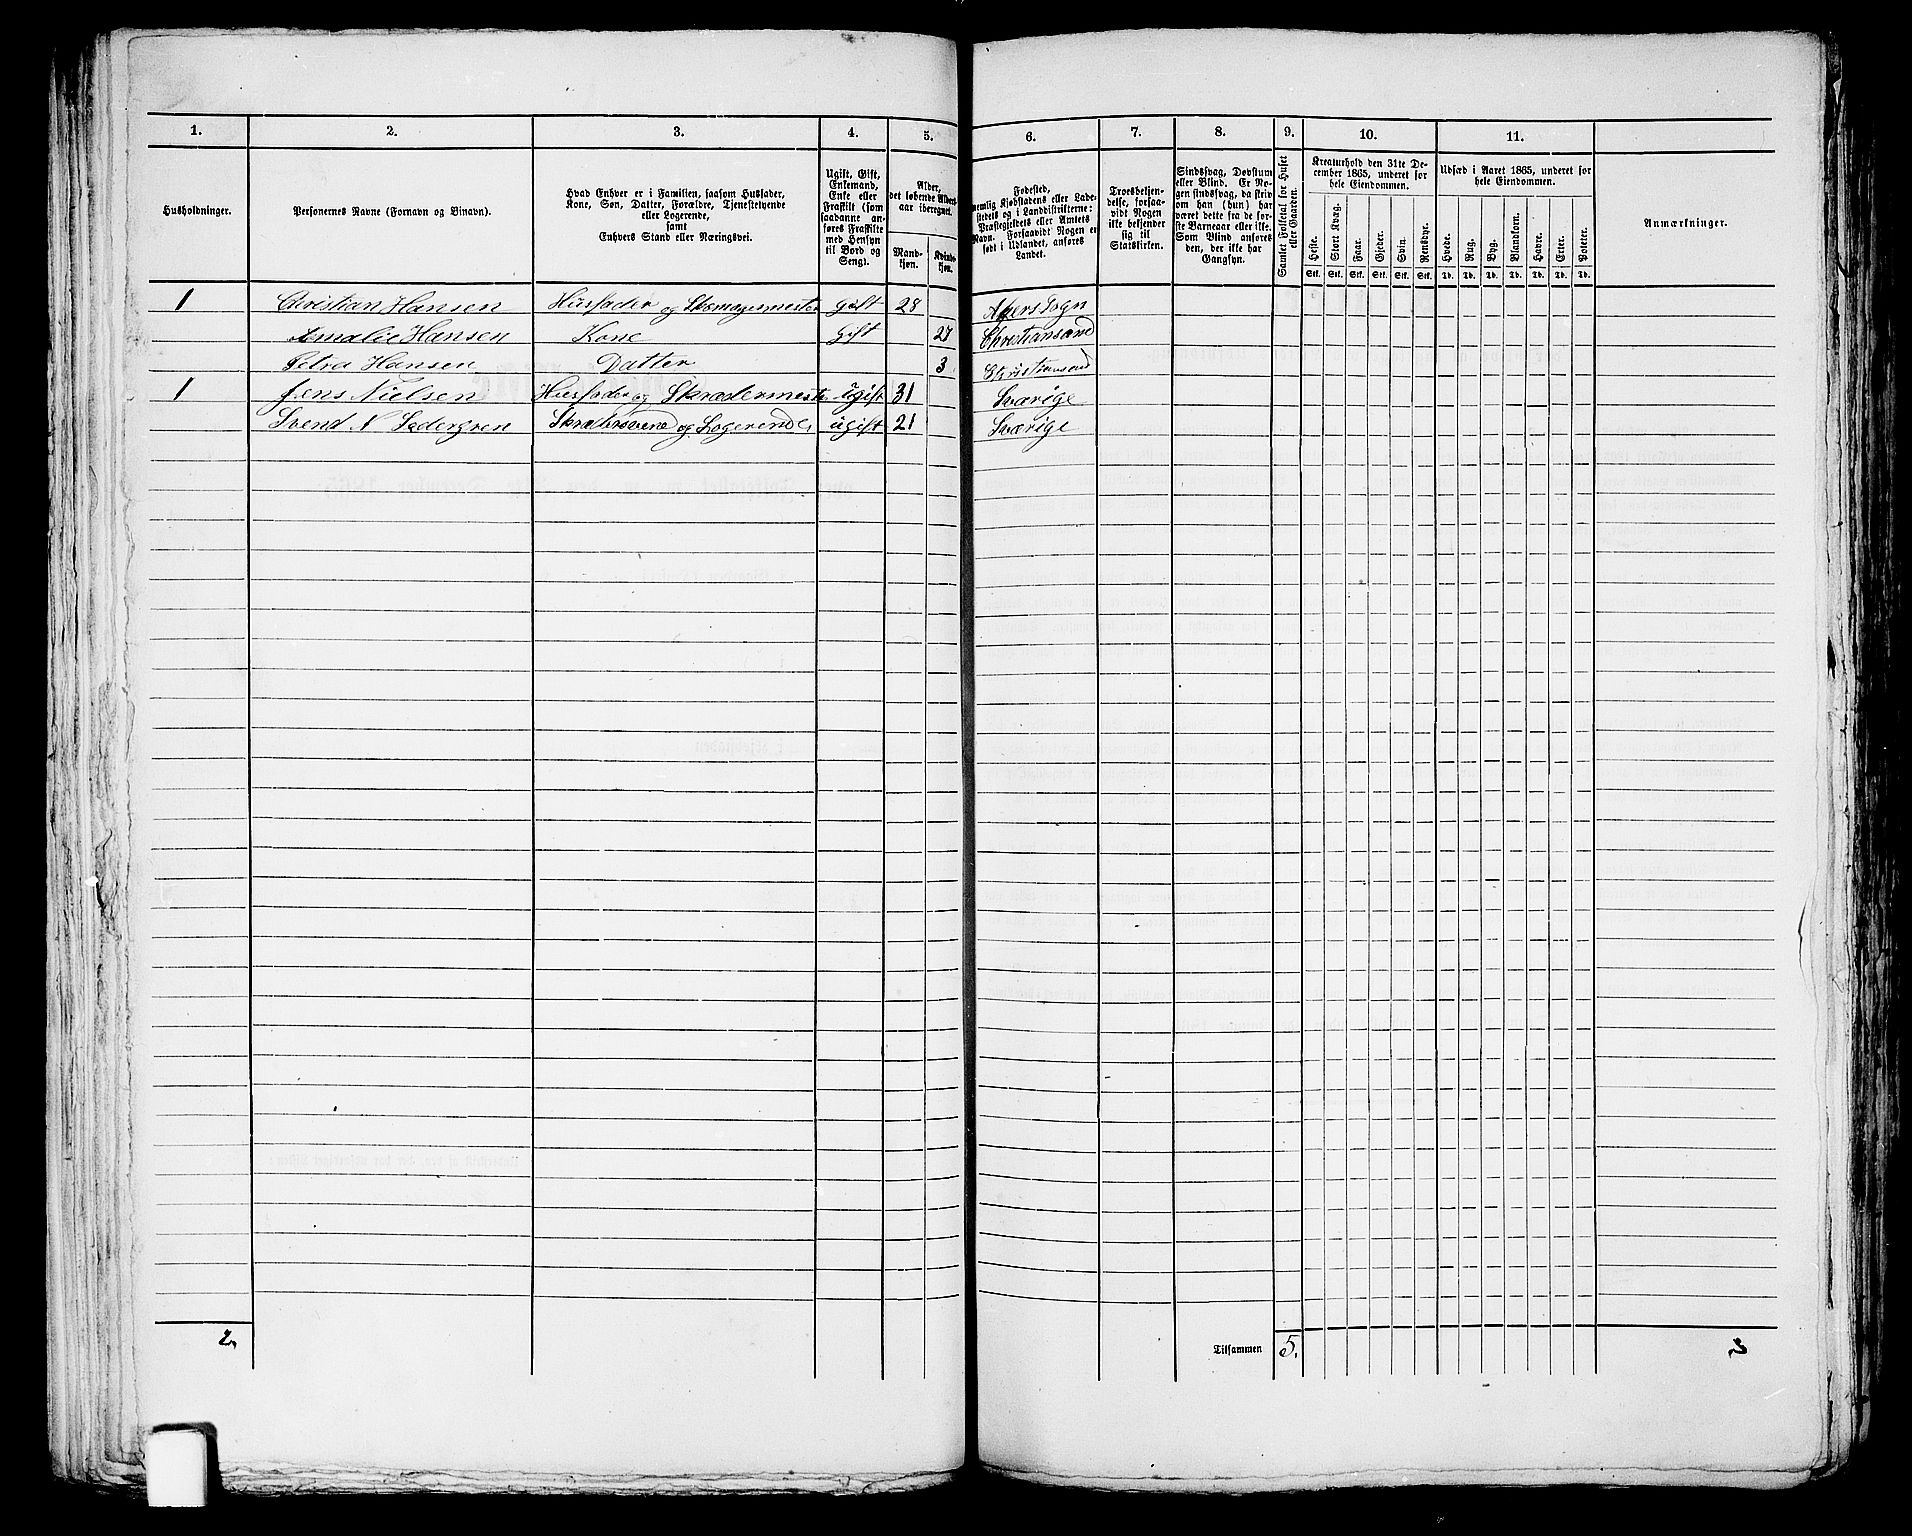 1. 2. 3. 4. 5. 6. 7. 8. 9. 10. 11.
Husholdninger.
Personernes Navne (Fornavn og Binavn).
Hvad Enhver er i Familien, saasom Husfader,
Kone, Søn, Datter, Forældre, Tjenestetyende
eller Logerende,
samt
Enhvers Stand eller Næringsvei.
Ugift, Gift,
Enkemand,
Enke eller
Fraskilt (som
saadanne an-
føres Fraskilte
med Hensyn
til Bord og
Seng).
Alder,
det løbende Alders-
aar iberegnet.
Mand-
kjøn.
Kvinde-
kjøn.
Fødested,
nemlig Kjøbstadens eller Lade-
stedets og i Landdistrikterne:
Præstegjeldets eller Amtets
Navn. Forsaavidt Nogen er
født i Udlandet, anføres
Landet.
Troesbekjen-
delse, forsaa-
vidt Nogen
ikke bekjender
sig til
Statskirken.
Sindssvag, Døvstum
eller Blind. Er No-
gen sindssvag, da skriv
om han (hun) har
været dette fra de før-
ste Barneaar eller ikke.
Som Blind anføres
den, der ikke har
Gangsyn.
Samlet Folketal for Huset
eller Gaarden.
Kreaturhold den 31te De-
cember 1865, underet for
hele Eiendommen.
Heste. Stort Kvæg. Faar. Gjeder. Svin. Rensdyr.
Stk. Stk. Stk. Stk. Stk. Stk.
Udsæd i Aaret 1865, underet for
hele Eiendommen.
Hvede. Rug. Byg. Blandkorn. Havre. Erter. Poteter.
Td. Td. Td. Td. Td. Td. Td.
Anmærkninger.
1 Christian Hansen Husfader og Skomagermester gift 28 Akers Sogn
Amalie Hansen Kone Gift 27 Christiansand
Petra Hansen Datter 3 Christiansand
1 Jens Nielsen Husfader og Skrædermester ugift 31 Sværige
Svend N Sedergren og Logerende, ugift 21 Sværige
2, Tilsammen 5. 3